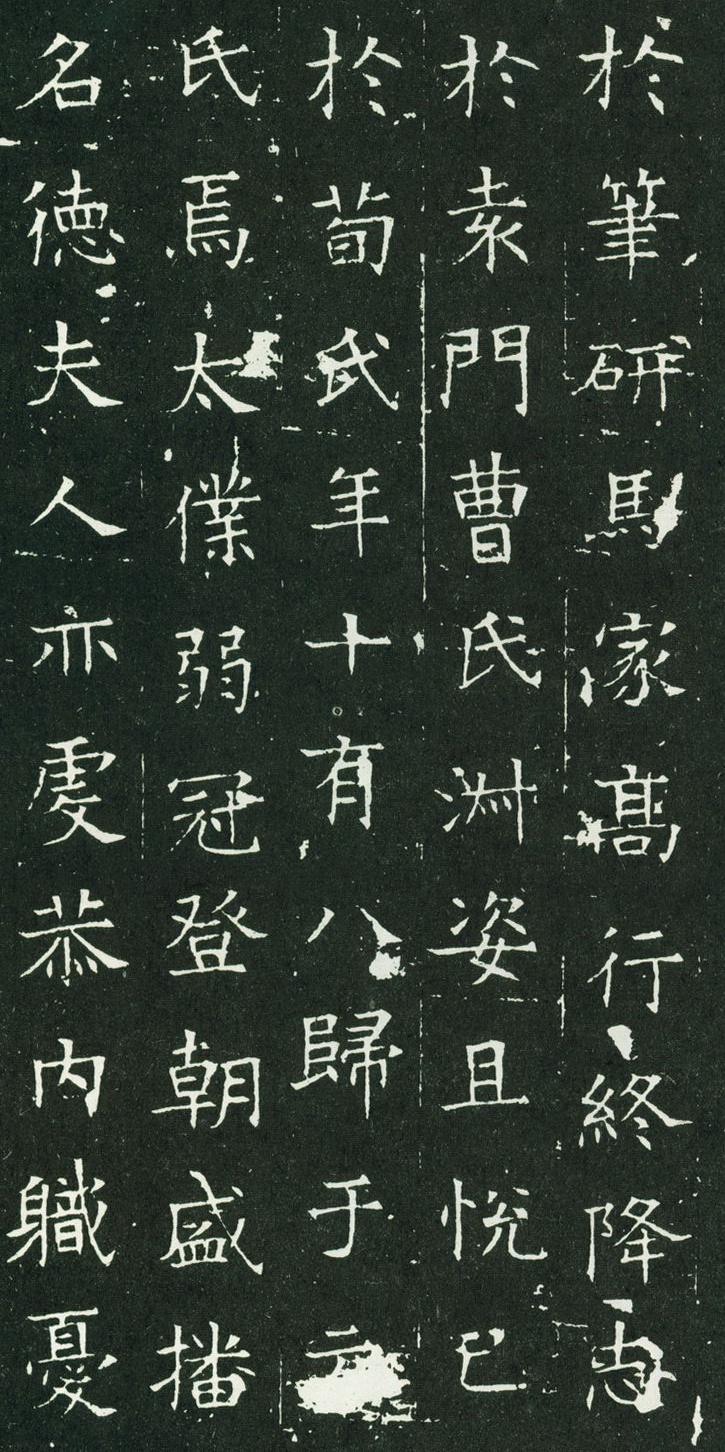 於筆硏馬家髙行終降志
於袁門曹氏淑姿且悅已
於荀氏年十有八歸于元
氏焉太僕弱冠登朝盛播
名德夫人亦虔恭内軄憂